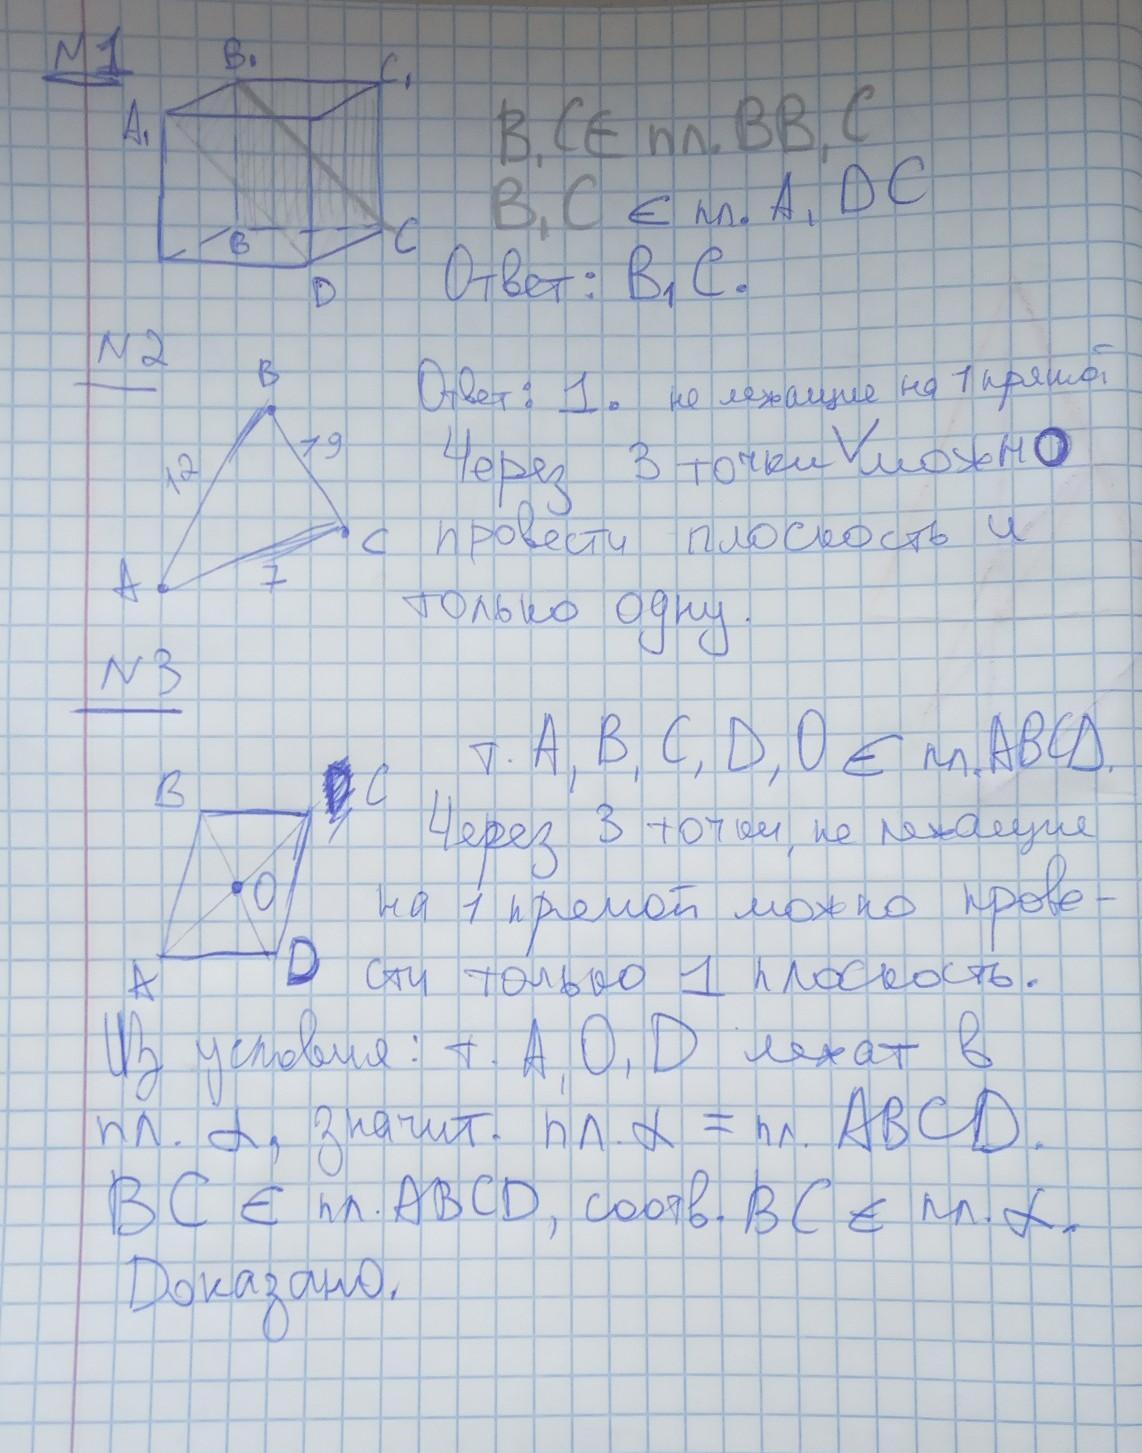 N1
B₁ C₁
A₁
B C
D
B₁C∈ пл. BB₁C
B₁C ∈ пл. A₁DC
Ответ: B₁C.
N2
B
12 19
A 7 C
Ответ: 1. не лежащие на 1 прямой
Через 3 точки V можно
провести плоскость и
только одну.
N3
B C
O
A D
т. A, B, C, D, O ∈ пл. ABCD.
Через 3 точки, не лежащие
на 1 прямой можно прове-
сти только 1 плоскость.
Из условия: т. A, O, D лежат в
пл. α, значит. пл. α = пл. ABCD.
BC ∈ пл. ABCD, соотв. BC ∈ пл. α.
Доказано.